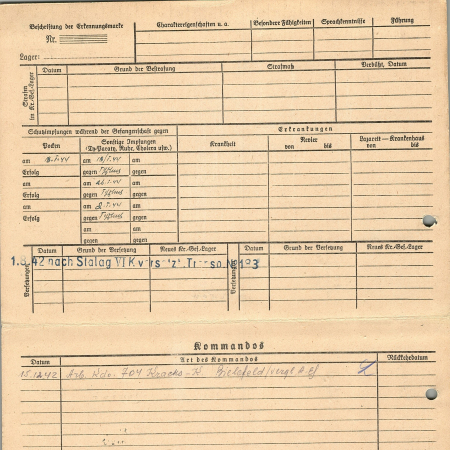 Beschriftung der Erkennungsmarke
Nr.
Lager:
Charaktereigenschaften u. a.
Besondere Fähigkeiten
Sprachkenntnisse
Führung
Strafen im Kr.-Gef.-Lager
Datum
Grund der Bestrafung
Strafmaß
Verbüßt, Datum
Schutzimpfungen während der Gefangenschaft gegen
Erkrankungen
Pocken
Sonstige Impfungen
(Ty-Paraty, Ruhr, Cholera usw.)
Krankheit
Revier
von bis
Lazarett — Krankenhaus
von bis
am am am
Erfolg gegen Typhus gegen
am am am
Erfolg gegen Typhus gegen
am am am
Erfolg gegen Typhus gegen
am am
gegen gegen
Versetzungen
Datum
Grund der Versetzung
Neues Kr.-Gef.-Lager
Versetzungen
Datum
Grund der Versetzung
Neues Kr.-Gef.-Lager
42 nach Stalag VI K
Kommandos
Datum
Art des Kommandos
Rückkehrdatum
15.12.42 Arb. Kdo. 704 Kracks Bielefeld